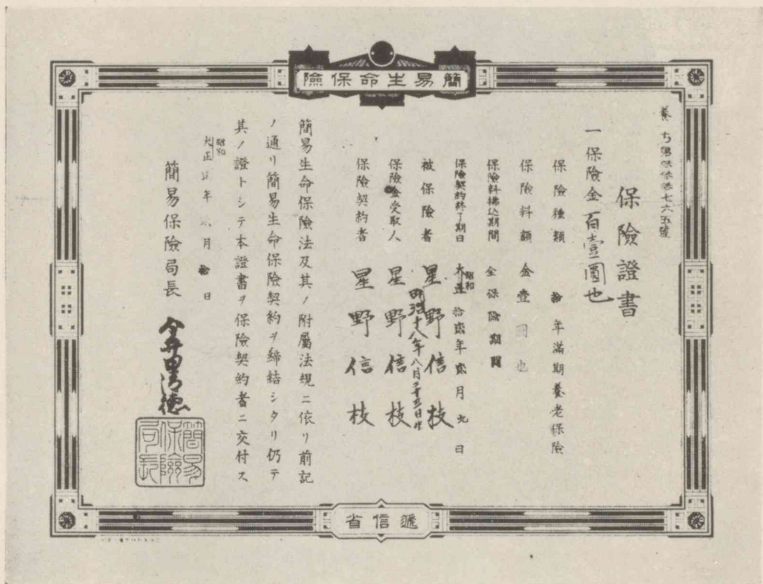 簡易生命保險
保險證書
一保險金百壹圓也
保險種類 拾年滿期養老保險
保險料額 金壹圓也
保險料拂込期間 全保險期間
保險契約終了期日 昭和 拾貳年貳月九日
被保險者 星野信枝
明治十八年八月
保險金受取人 星野信枝
保險契約者 星野信枝
簡易生命保險法及其ノ附屬法規ニ依リ前記
ノ通リ簡易生命保險契約ヲ締結シタリ仍テ
其ノ證トシテ本證書ヲ保險契約者ニ交付ス
昭和 大正 年 月 日
簡易保險局長
簡易保險局長
遞信省